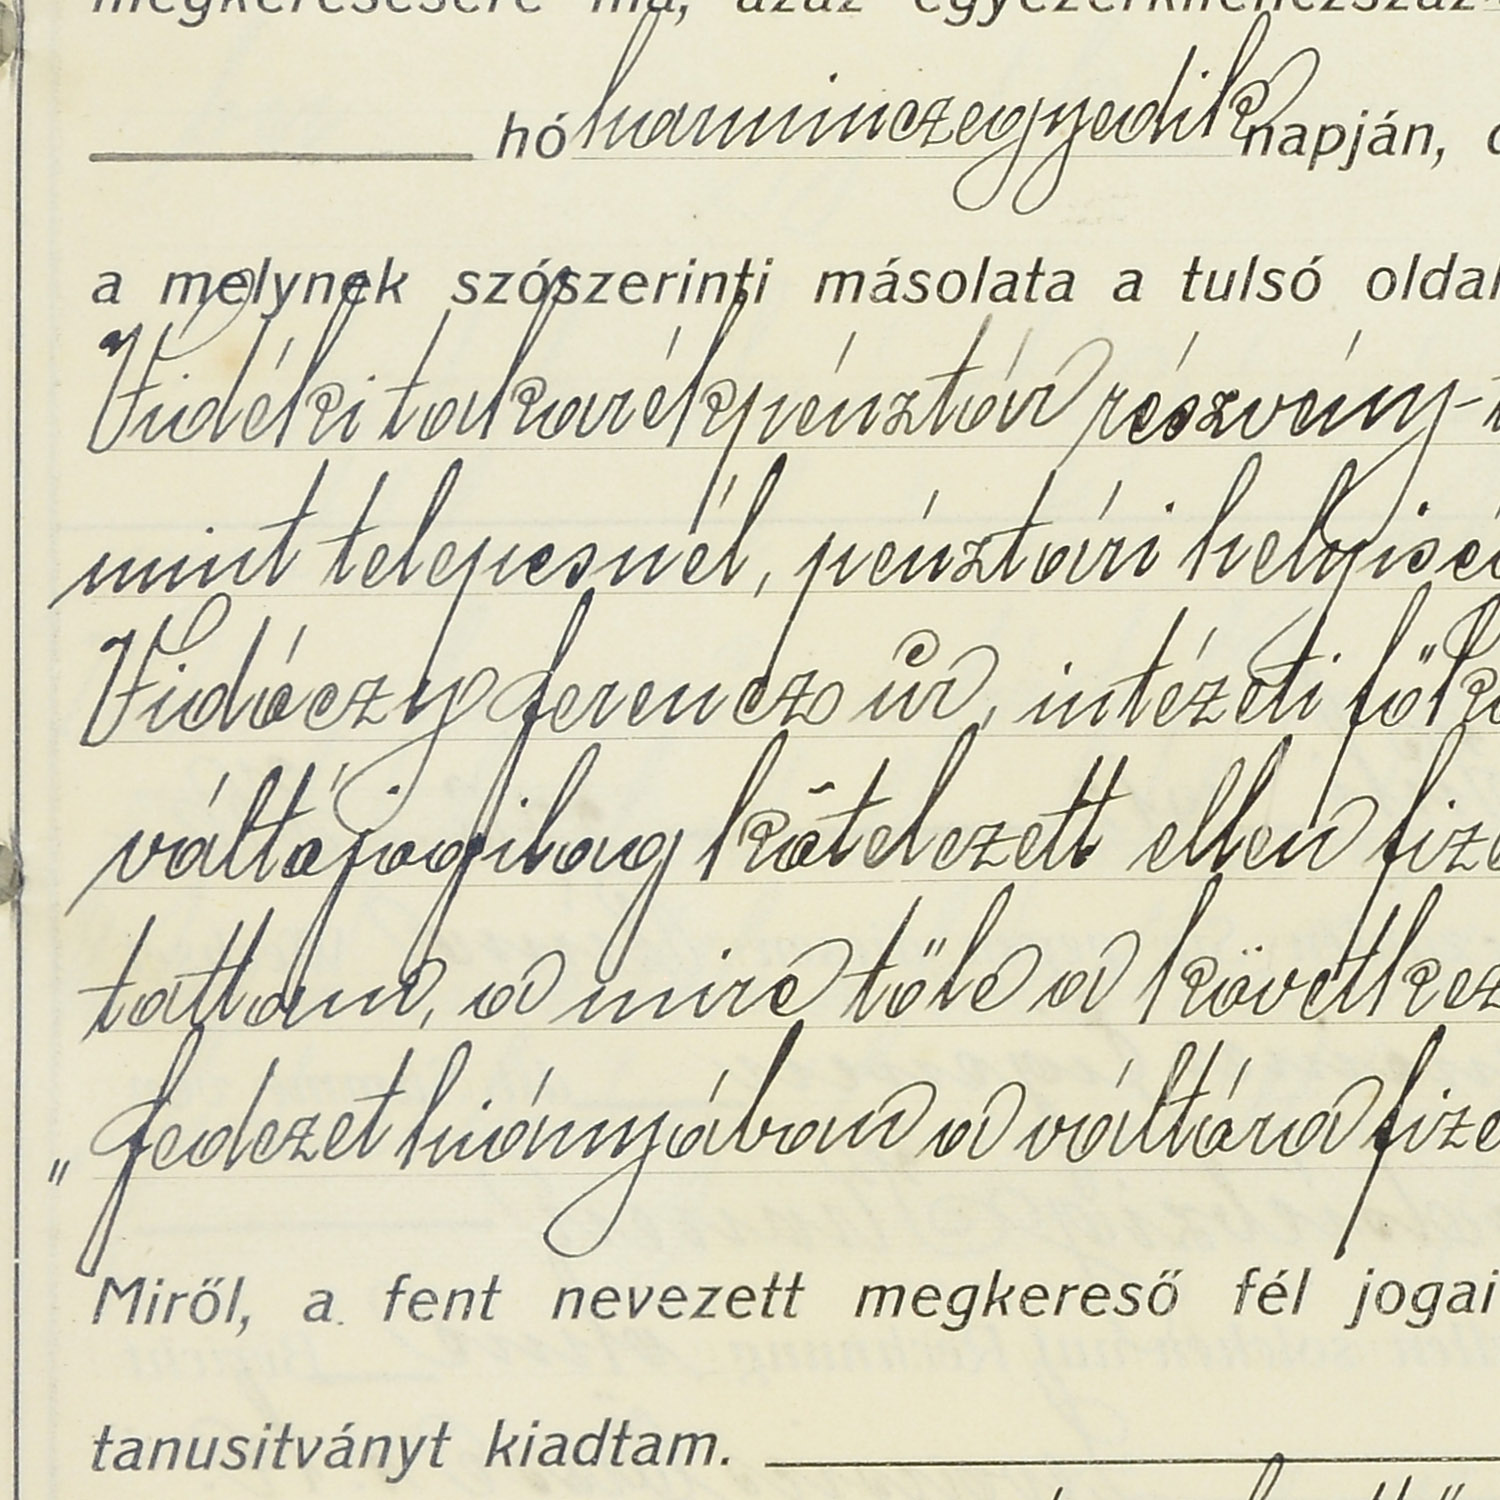 megkeresésére ma, azaz egyezerkilenczszáz
hó harminczegyedik napján,
a melynek szószerinti másolata a tulsó oldal
Vidéki takarékpénztár részvény-
mint telepesnél, pénztári helyisé
Vidóczy Ferencz úr, intézeti fők
váltójogilag kötelezett ellen fize
tattam, a mire tőle a következ
„Fedezet hiányában a váltóra fize
Miről, a fent nevezett megkereső fél jogai
tanusitványt kiadtam.